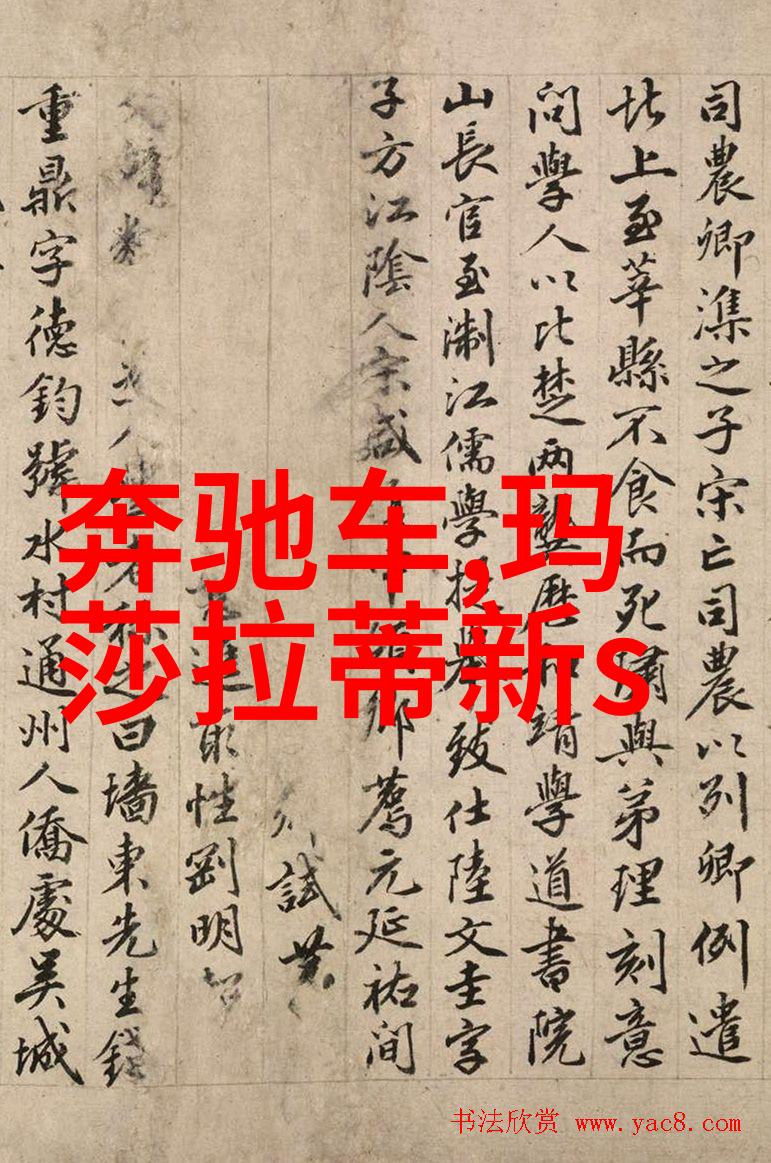 奔驰车,玛
莎拉蒂新s
司農卿潗之子宋亡司農以列卿例遣
北上至莘縣不食而死璛與弟理刻意
問學人以比楚两龔歷和靖學道書院
山長官至淛江儒學提舉致仕陸文圭字
子方江陰人宋咸中領鄉薦元延祐間
試
性剛明
人之曰墻東先生錢
重鼎字德鈞號水村通州人僑處吴城
书法欣赏 www.yac8.com